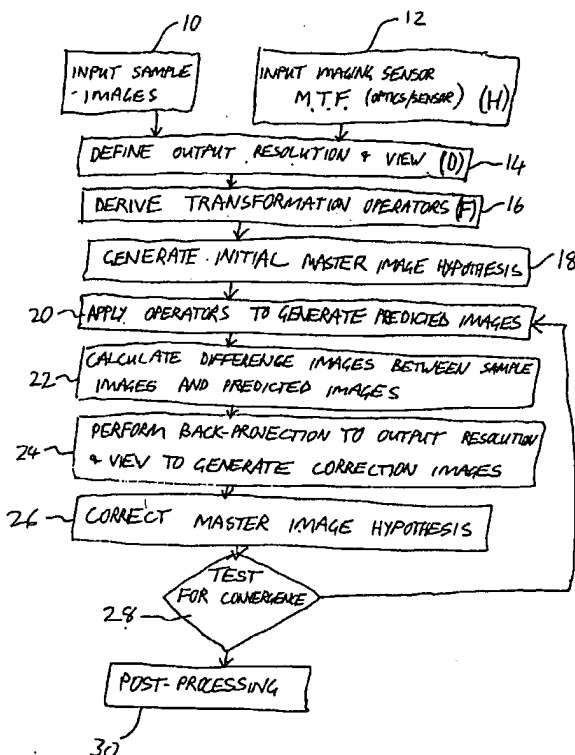 10
12
INPUT SAMPLE
- IMAGES
INPUT IMAGING SENSOR
M.T.F. (OPTICS/SENSOR) (H)
DEFINE OUTPUT RESOLUTION & VIEW (D)
14
DERIVE TRANSFORMATION OPERATORS (F)
16
GENERATE INITIAL MASTER IMAGE HYPOTHESIS
18
20
APPLY OPERATORS TO GENERATE PREDICTED IMAGES
22
CALCULATE DIFFERENCE IMAGES BETWEEN SAMPLE
IMAGES AND PREDICTED IMAGES
24
PERFORM BACK-PROJECTION TO OUTPUT RESOLUTION
& VIEW TO GENERATE CORRECTION IMAGES
26
CORRECT MASTER IMAGE HYPOTHESIS
TEST
FOR CONVERGENCE
28
POST-PROCESSING
30